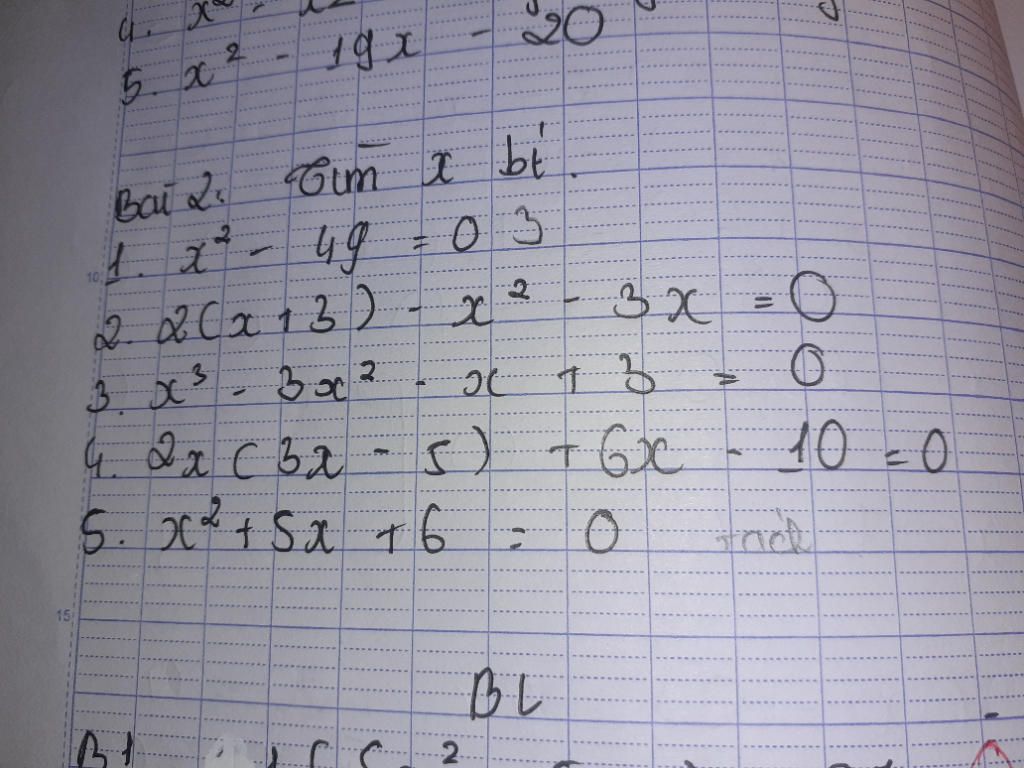 4. x²
5. x² - 19x - 20
Bài 2: Tìm x bt.
1. x² - 49 = 0 3
2. 2(x + 3) - x² - 3x = 0
3. x³ - 3x² - x + 3 = 0
4. 2x(3x - 5) + 6x - 10 = 0
5. x² + 5x + 6 = 0 tách
10
15
BL
B1